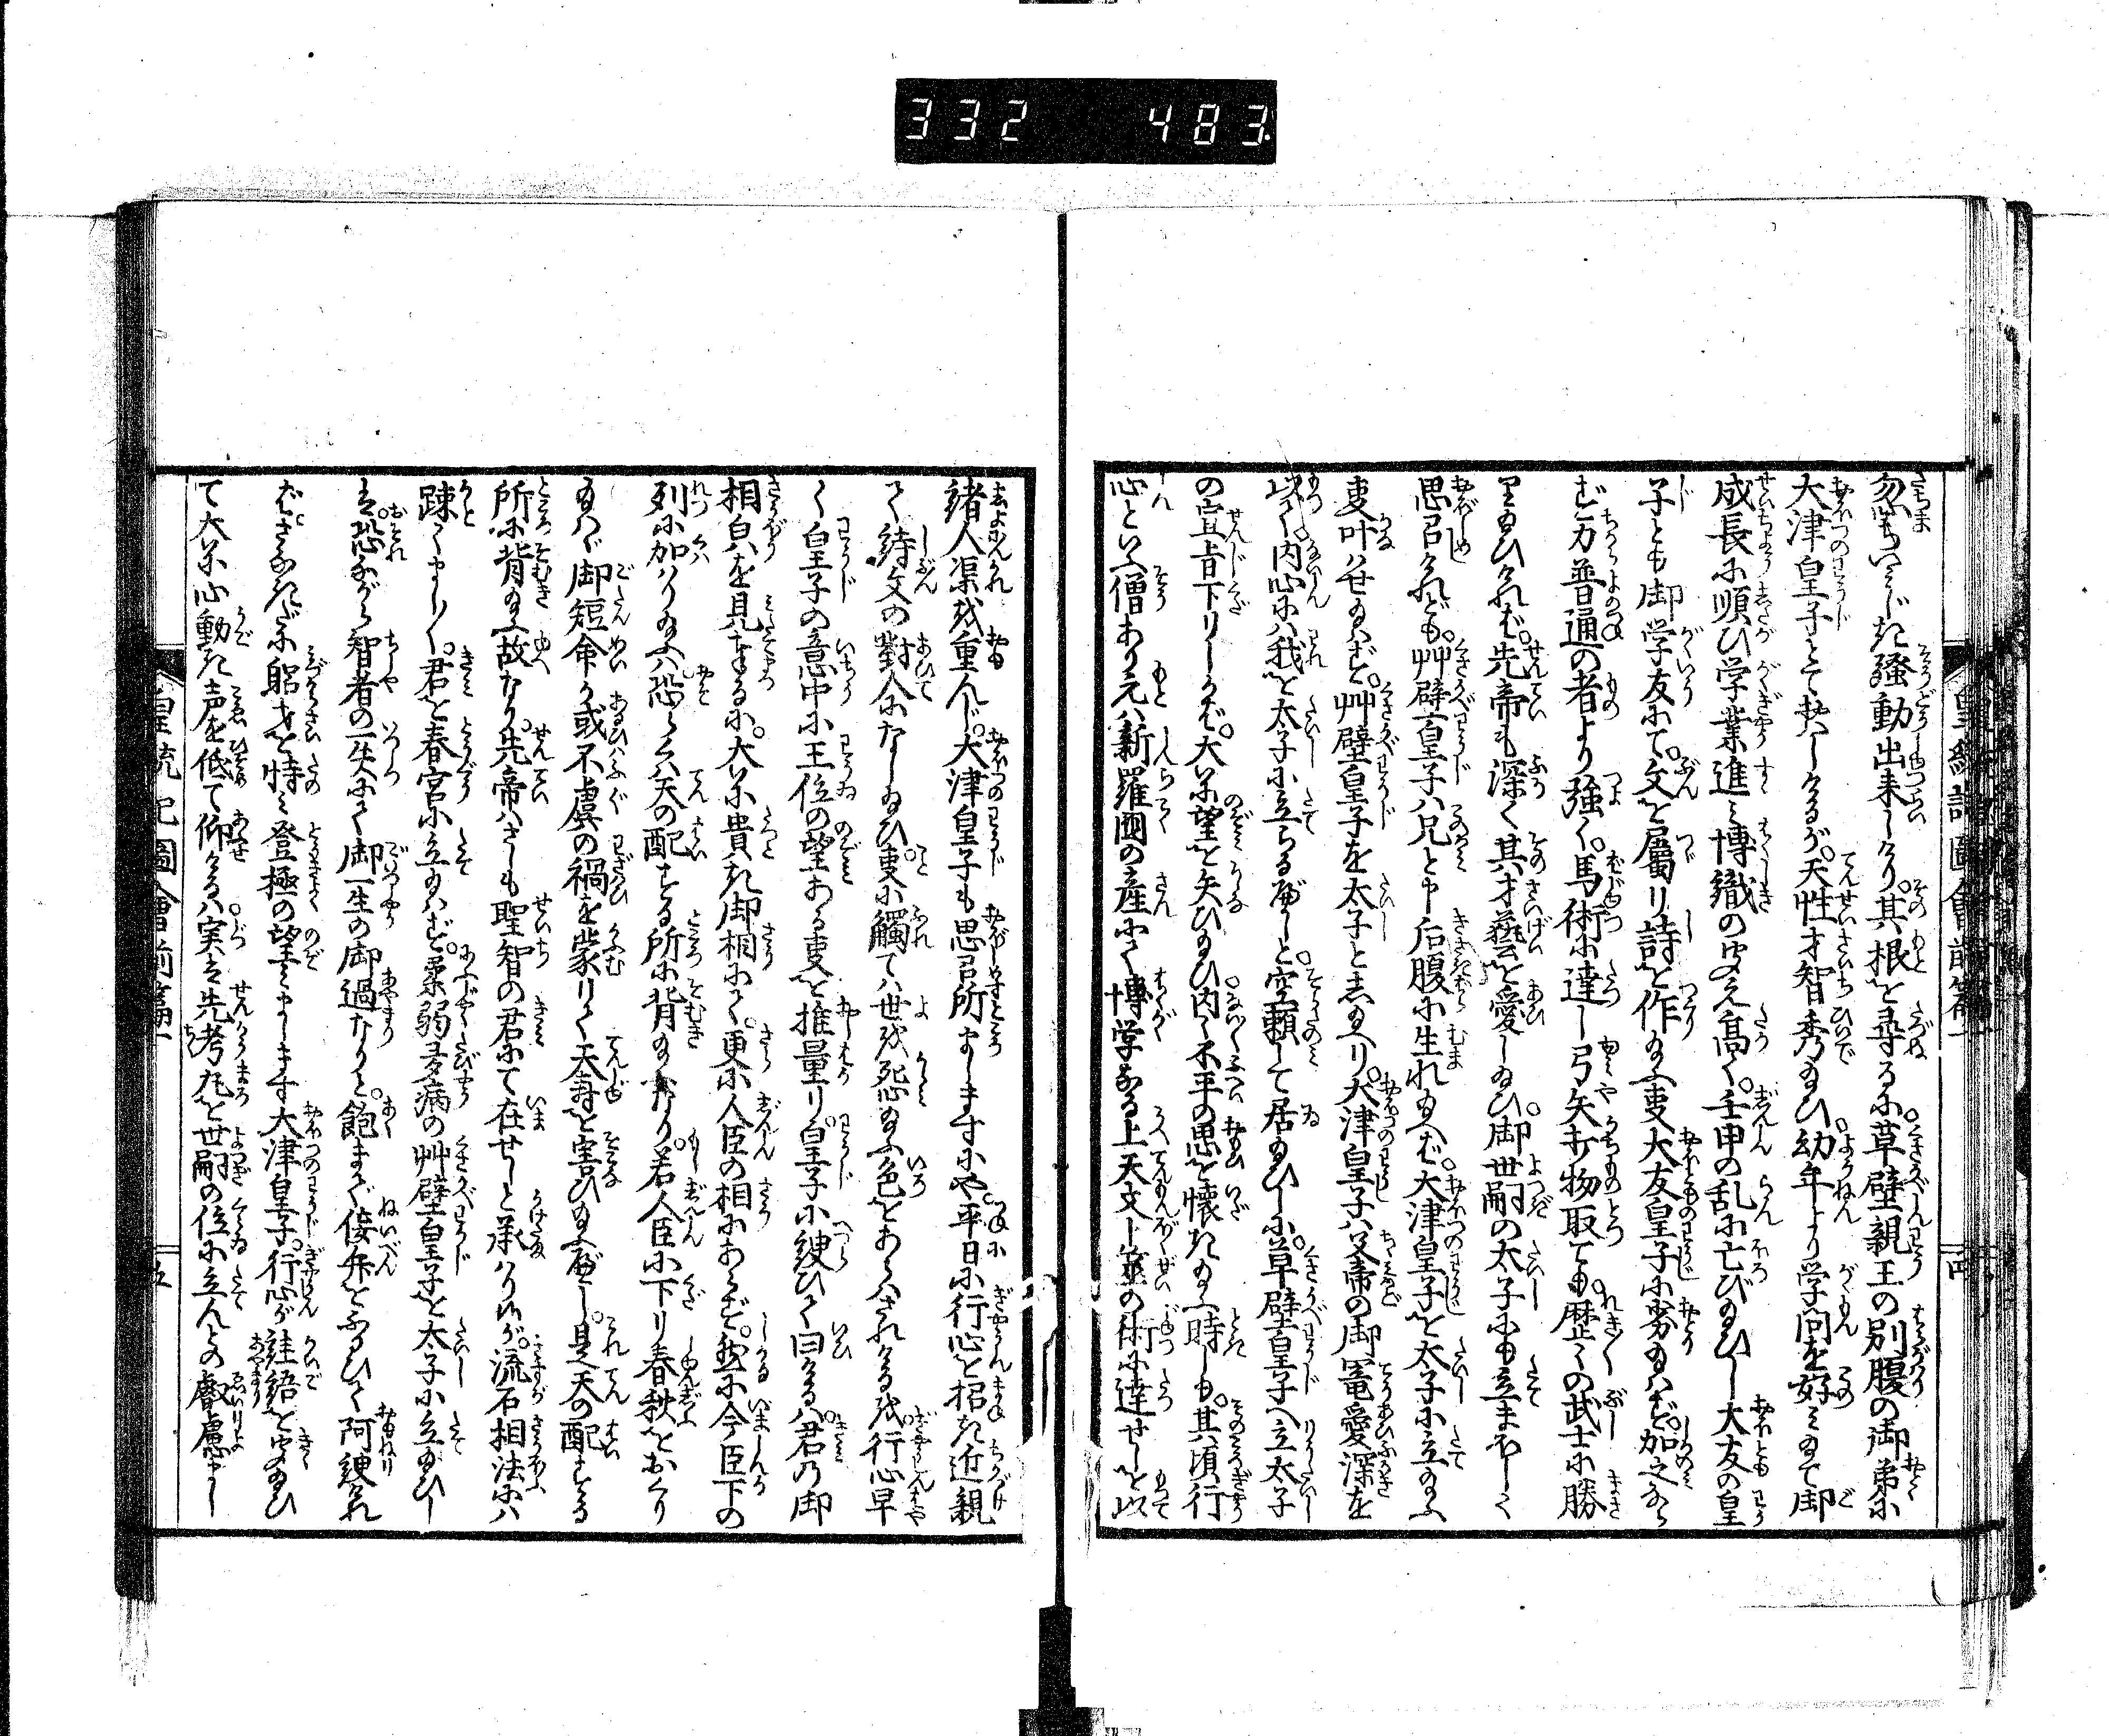 332 483
忽ちいみじき騒動出来しけり。其根を尋るに。草壁親王の別腹の御弟に
大津皇子とて在しけるが。天性才智秀給ひ。幼年より学問を好み給て御
成長に順ひ学業進み博織の聞え高く。壬申の乱に亡び給ひし大友の皇
子とも御学友にて。文を属り詩を作給ふ事大友皇子に劣給はず。加之なら
ず力普通の者より強く。馬術に達し弓矢打物取ても。歴々の武士に勝
り給ひければ。先帝も深く其才藝を愛し給ひ。御世嗣の太子にも立まほしく
思召けれども。艸壁皇子は兄と申后腹に生れ給へば。大津皇子を太子に立給ふ
事叶はせ給はず。艸壁皇子を太子と為給へり。大津皇子は父帝の御寵愛深を
以て。内心には我を太子に立らるべしと。空頼して居給ひしに。草壁皇子へ立太子
の宣旨下りしかば。大に望を失ひ給ひ。内々不平の思を懐き給ふ時しも。其頃行
心といふ僧あり元は新羅国の産にて博学なる上天文卜筮の術に達せしを以
諸人渠を重んじ。大津皇子も思召所ましますにや。平日に行心を招き近親
て詩文の對合になし給ひ。事に觸ては世を怨給ふ色をあらはされけるを。行心早
く皇子の意中に王位の望ある事を推量り。皇子に諛ひて曰けるは。君の御
相皃を見奉るに。大に貴き御相にて。更に人臣の相にあらず。然に今臣下の
列に加はり給ふは恐らくは天の配する所に背給へり。若人臣に下り春秋をおくり
給はゞ御短命か或不虞の禍を蒙りて天壽を害ひ給ふべし。是天の配する
所に背き給ふ故なり。先帝はさしも聖智の君にて在せしと承はりしが。流石相法には
疎くましまし〱。君を春宮に立給はず。柔弱多病の艸壁皇子を太子に立給ひし
は。恐ながら智者の一失にて御一生の御過なりと。飽まで佞弁をふるひて阿諛けれ
ば。さなきだに躬才を恃み登極の望まします大津皇子。行心が詿語を聞給ひ
て大に心動き声を低て仰けるは。実は先考丸を世嗣の位に立んとの叡慮まし
皇統記圖會前篇一
五